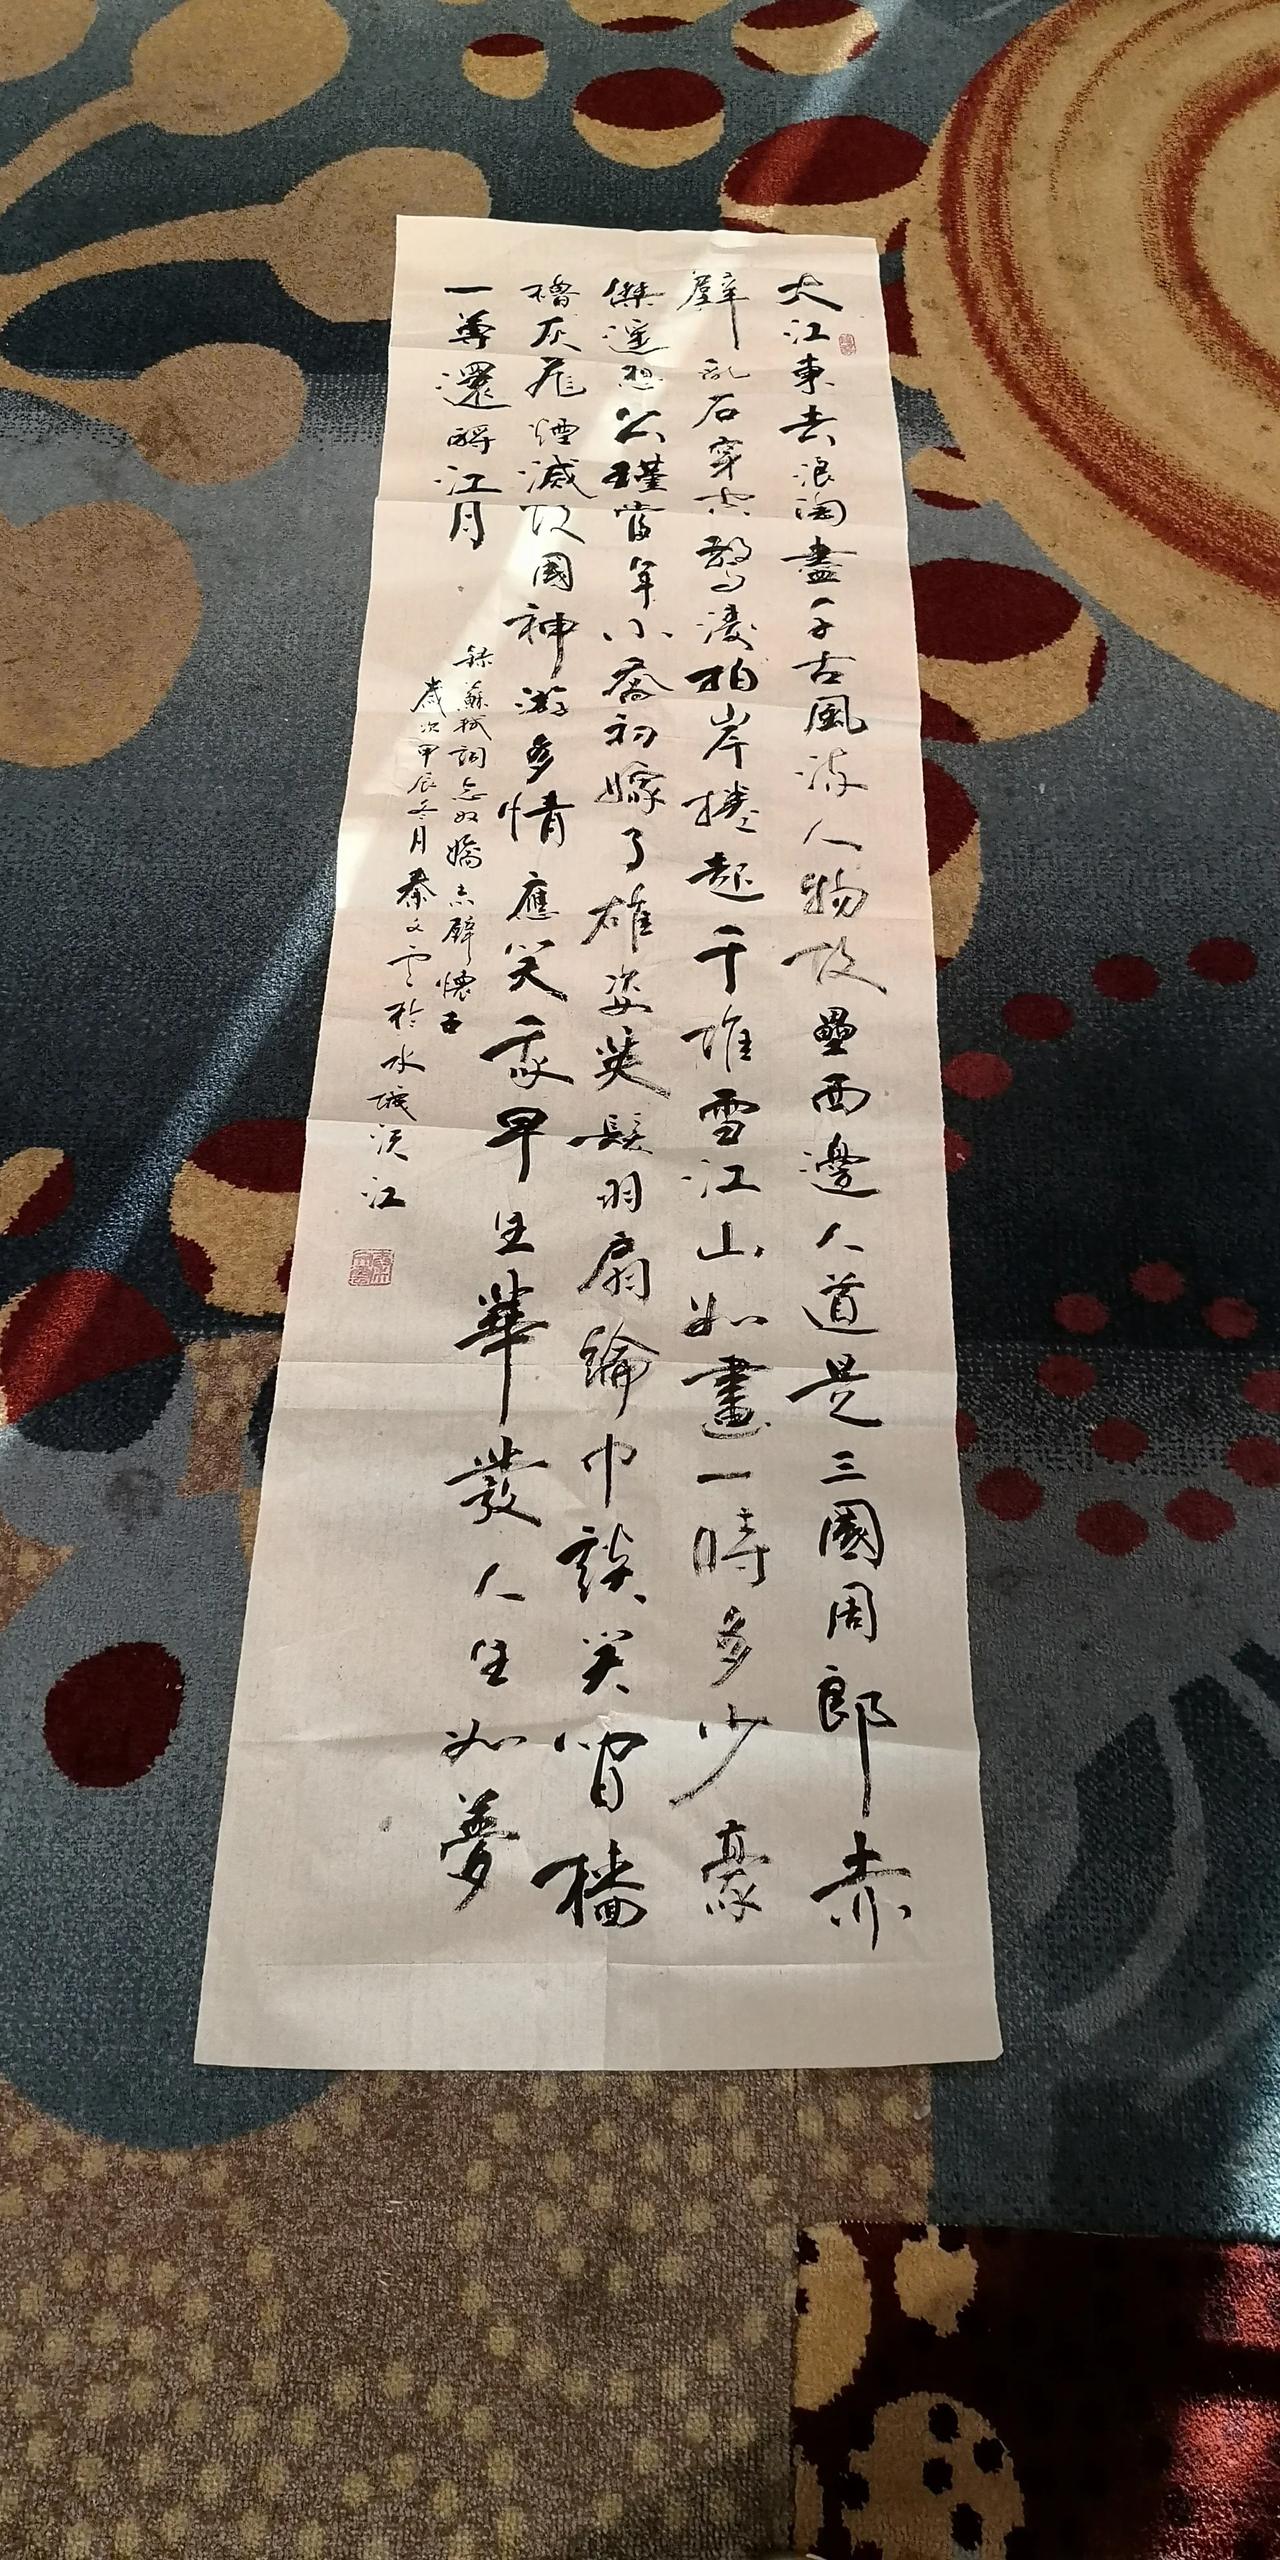 大江東去浪淘盡千古風流人物故壘西邊人道是三國周郎赤
壁亂石穿空驚濤拍岸捲起千堆雪江山如畫一時多少豪
傑遙想公瑾當年小喬初嫁了雄姿英發羽扇綸巾談笑間檣
櫓灰飛煙滅故國神游多情應笑我早生華發人生如夢
一尊還酹江月
錄蘇軾詞念奴嬌赤壁懷古
歲次甲辰冬月秦文雲於水城濱江